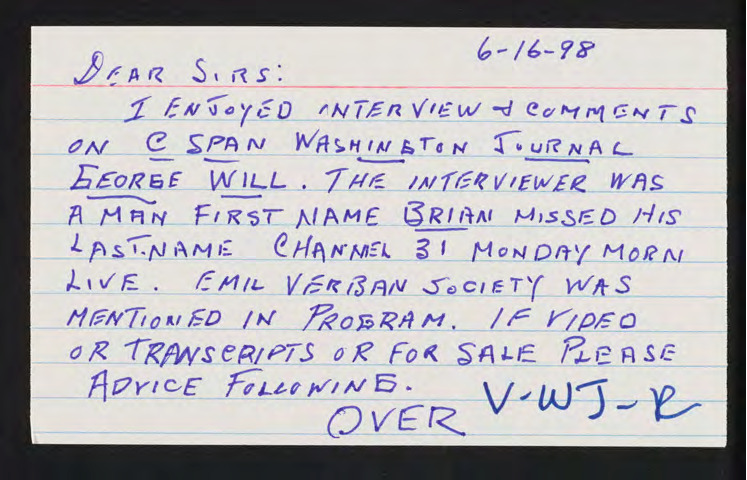 6-16-98
DEAR SIRS:
I ENJOYED INTERVIEW & COMMENTS
ON C SPAN WASHINGTON JOURNAL
GEORGE WILL. THE INTERVIEWER WAS
A MAN FIRST NAME BRIAN MISSED HIS
LAST-NAME CHANNEL 31 MONDAY MORN
LIVE. EMIL VERBAN SOCIETY WAS
MENTIONED IN PROGRAM. IF VIDEO
OR TRANSCRIPTS OR FOR SALE PLEASE
ADVICE FOLLOWING.
V-WJ-R
OVER